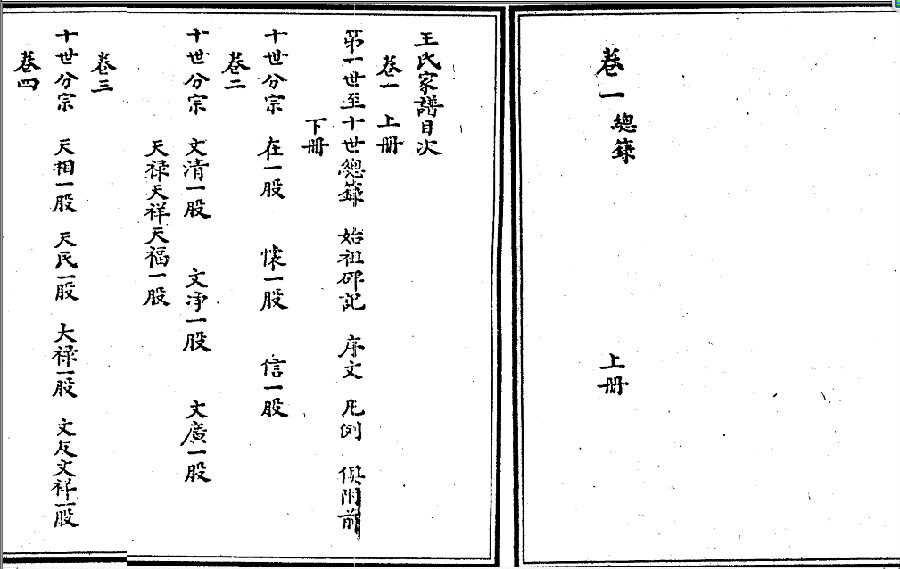 卷一 總錄 上冊
王氏家譜目次
卷一 上冊
第一世至十世總錄 始祖碑記 序文 凡例 俱附前
下冊
十世分宗 在一股 懷一股 信一股
卷二
十世分宗 文清一股 文淨一股 文廣一股
天祿天祥天福一股
卷三
十世分宗 天相一股 天民一股 大祿一股 文友文祥一股
卷四